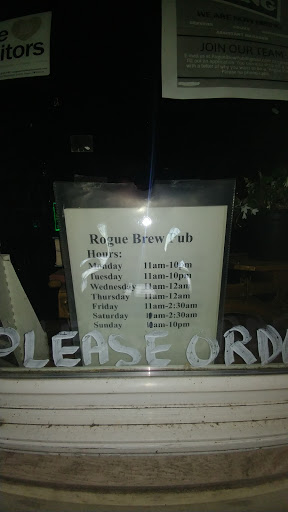 itors
WE ARE NOW HIRING
JOIN OUR TEAM
Rogue Brew Pub
Hours:
Monday 11am-10pm
Tuesday 11am-10pm
Wednesday 11am-12am
Thursday 11am-12am
Friday 11am-2:30am
Saturday 11am-2:30am
Sunday 11am-10pm
PLEASE ORD